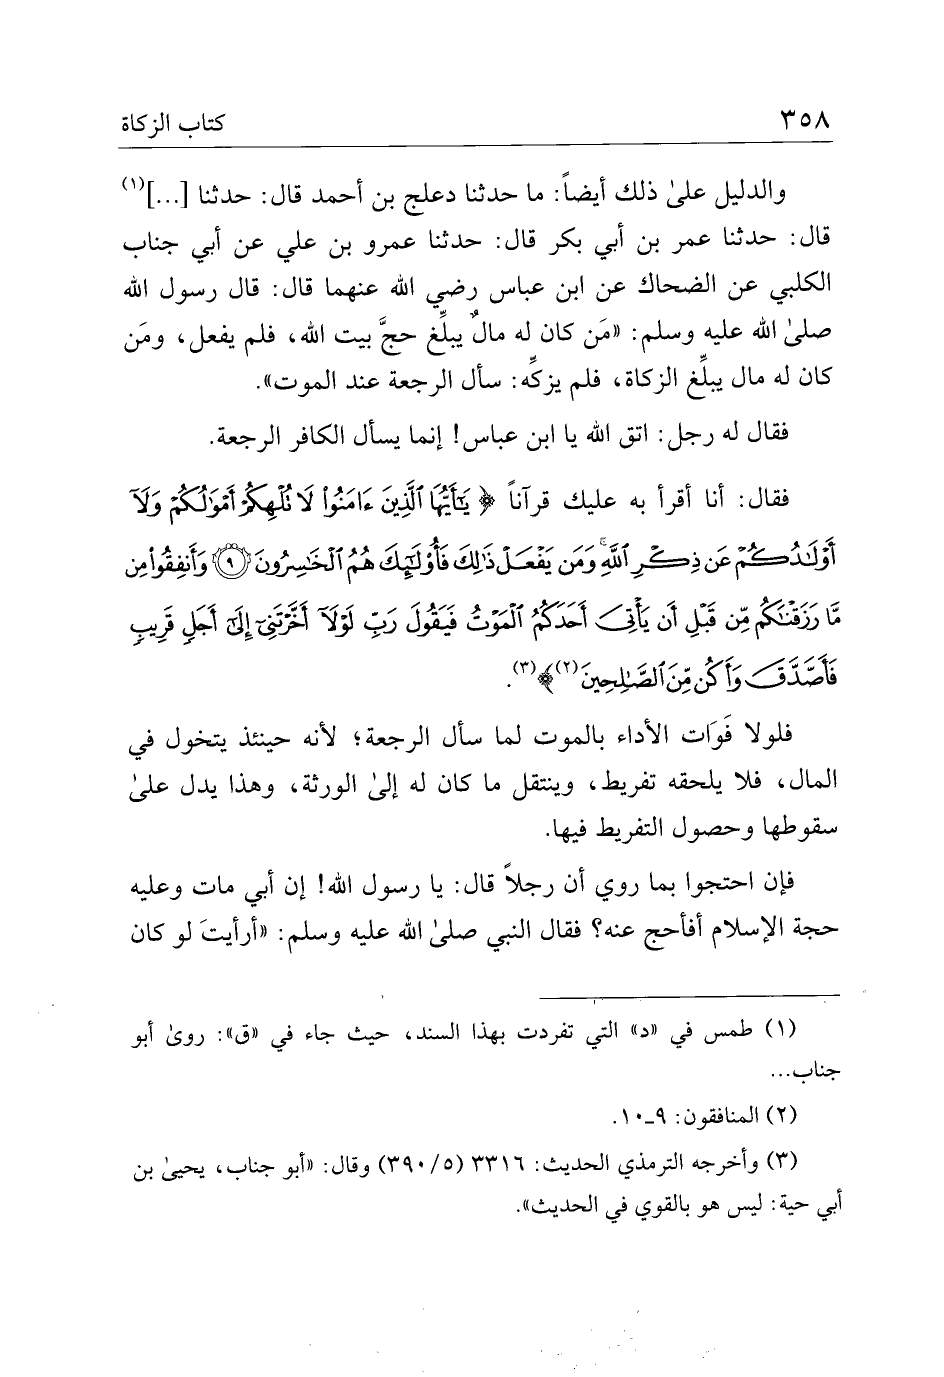 ٣٥٨ كتاب الزكاة
والدليل علىٰ ذلك أيضاً: ما حدثنا دعلج بن أحمد قال: حدثنا [...](١)
قال: حدثنا عمر بن أبي بكر قال: حدثنا عمرو بن علي عن أبي جناب
الكلبي عن الضحاك عن ابن عباس رضي الله عنهما قال: قال رسول الله
صلىٰ الله عليه وسلم: «مَن كان له مالٌ يبلِّغ حجَّ بيت الله، فلم يفعل، ومَن
كان له مال يبلِّغ الزكاة، فلم يزكِّه: سأل الرجعة عند الموت».
فقال له رجل: اتق الله يا ابن عباس! إنما يسأل الكافر الرجعة.
فقال: أنا أقرأ به عليك قرآناً ﴿ يَٰٓأَيُّهَا ٱلَّذِينَ ءَامَنُوا۟ لَا تُلْهِكُمْ أَمْوَٰلُكُمْ وَلَآ
أَوْلَٰدُكُمْ عَن ذِكْرِ ٱللَّهِ ۚ وَمَن يَفْعَلْ ذَٰلِكَ فَأُو۟لَٰٓئِكَ هُمُ ٱلْخَٰسِرُونَ ٩ وَأَنفِقُوا۟ مِن
مَّا رَزَقْنَٰكُم مِّن قَبْلِ أَن يَأْتِىَ أَحَدَكُمُ ٱلْمَوْتُ فَيَقُولَ رَبِّ لَوْلَآ أَخَّرْتَنِىٓ إِلَىٰٓ أَجَلٍ قَرِيبٍ
فَأَصَّدَّقَ وَأَكُن مِّنَ ٱلصَّٰلِحِينَ(٢)﴾(٣).
فلولا فَوَات الأداء بالموت لما سأل الرجعة؛ لأنه حينئذ يتخول في
المال، فلا يلحقه تفريط، وينتقل ما كان له إلىٰ الورثة، وهذا يدل علىٰ
سقوطها وحصول التفريط فيها.
فإن احتجوا بما روي أن رجلاً قال: يا رسول الله! إن أبي مات وعليه
حجة الإسلام أفأحج عنه؟ فقال النبي صلىٰ الله عليه وسلم: «أرأيتَ لو كان
(١) طمس في «د» التي تفردت بهذا السند، حيث جاء في «ق»: روىٰ أبو
جناب...
(٢) المنافقون: ٩ـ١٠.
(٣) وأخرجه الترمذي الحديث: ٣٣١٦ (٣٩٠/٥) وقال: «أبو جناب، يحيىٰ بن
أبي حية: ليس هو بالقوي في الحديث».